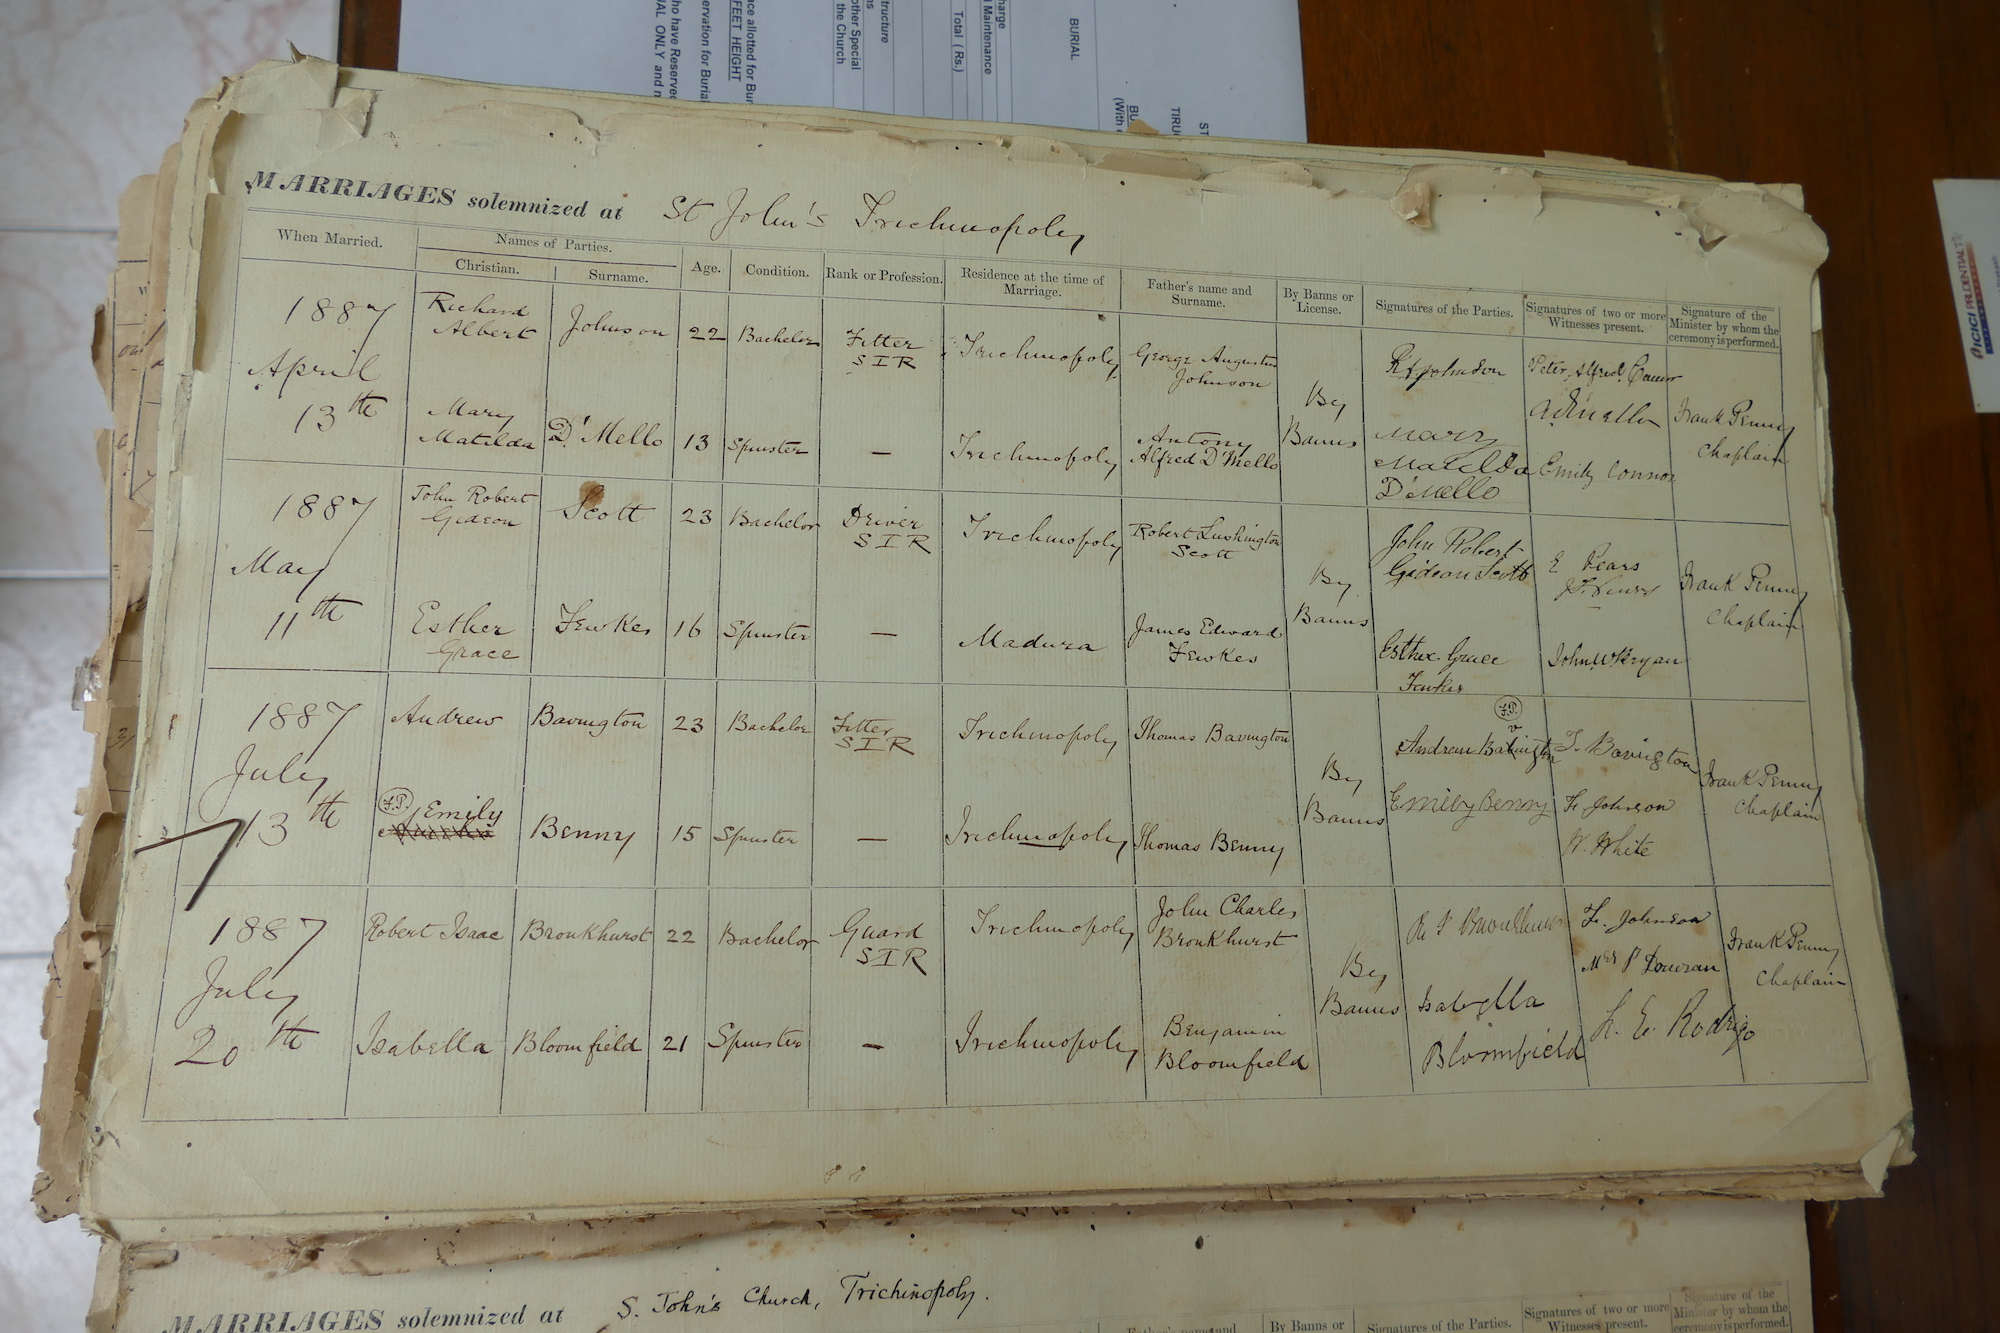 BURIAL
Total ( Rs.)
Maintenance
other Special
the Church
FEET HEIGHT
ICICI PRUDENTIAL
MARRIAGES solemnized at St John's Trichinopoly
When Married.
Names of Parties.
Christian.
Surname.
Age.
Condition.
Rank or Profession.
Residence at the time of
Marriage.
Father's name and
Surname.
By Banns or
License.
Signatures of the Parties.
Signatures of two or more
Witnesses present.
Signature of the
Minister by whom the
ceremony is performed.
1887
April
13th
Richard
Albert
Johnson
22
Bachelor
Fitter
S I R
Trichinopoly
George Augustus
Johnson
By
Banns
R A Johnson
Peter Alfred
Frank Penny
Chaplain
Mary
Matilda
D'Mello
13
Spinster
—
Trichinopoly
Antony
Alfred D'Mello
Mary
Matilda
D'Mello
Emily Connor
1887
May
11th
John Robert
Gideon
Scott
23
Bachelor
Driver
S I R
Trichinopoly
Robert Lushington
Scott
By
Banns
John Robert
Gideon Scott
E Pears
Frank Penny
Chaplain
Esther
Grace
Fewkes
16
Spinster
—
Madura
James Edward
Fewkes
Esther Grace
Fewkes
John W Bryan
1887
July
13th
Andrew
Bavington
23
Bachelor
Fitter
S I R
Trichinopoly
Thomas Bavington
By
Banns
F.P.
v
Andrew Babington
T. Bavington
Frank Penny
Chaplain
F.P.
Emily
Benny
15
Spinster
—
Trichinopoly
Thomas Benny
Emily Benny
F. Johnson
W. White
1887
July
20th
Robert Isaac
Bronkhurst
22
Bachelor
Guard
S I R
Trichinopoly
John Charles
Bronkhurst
By
Banns
R I
F. Johnson
Mrs P Donovan
Frank Penny
Chaplain
Isabella
Bloomfield
21
Spinster
—
Trichinopoly
Benjamin
Bloomfield
Isabella
Bloomfield
L. E. Rodrigo
MARRIAGES solemnized at S. John's Church, Trichinopoly.
Father's name and
By Banns or
Signatures of the Parties.
Signatures of two or more
Witnesses present.
Signature of the
Minister by whom the
ceremony is performed.